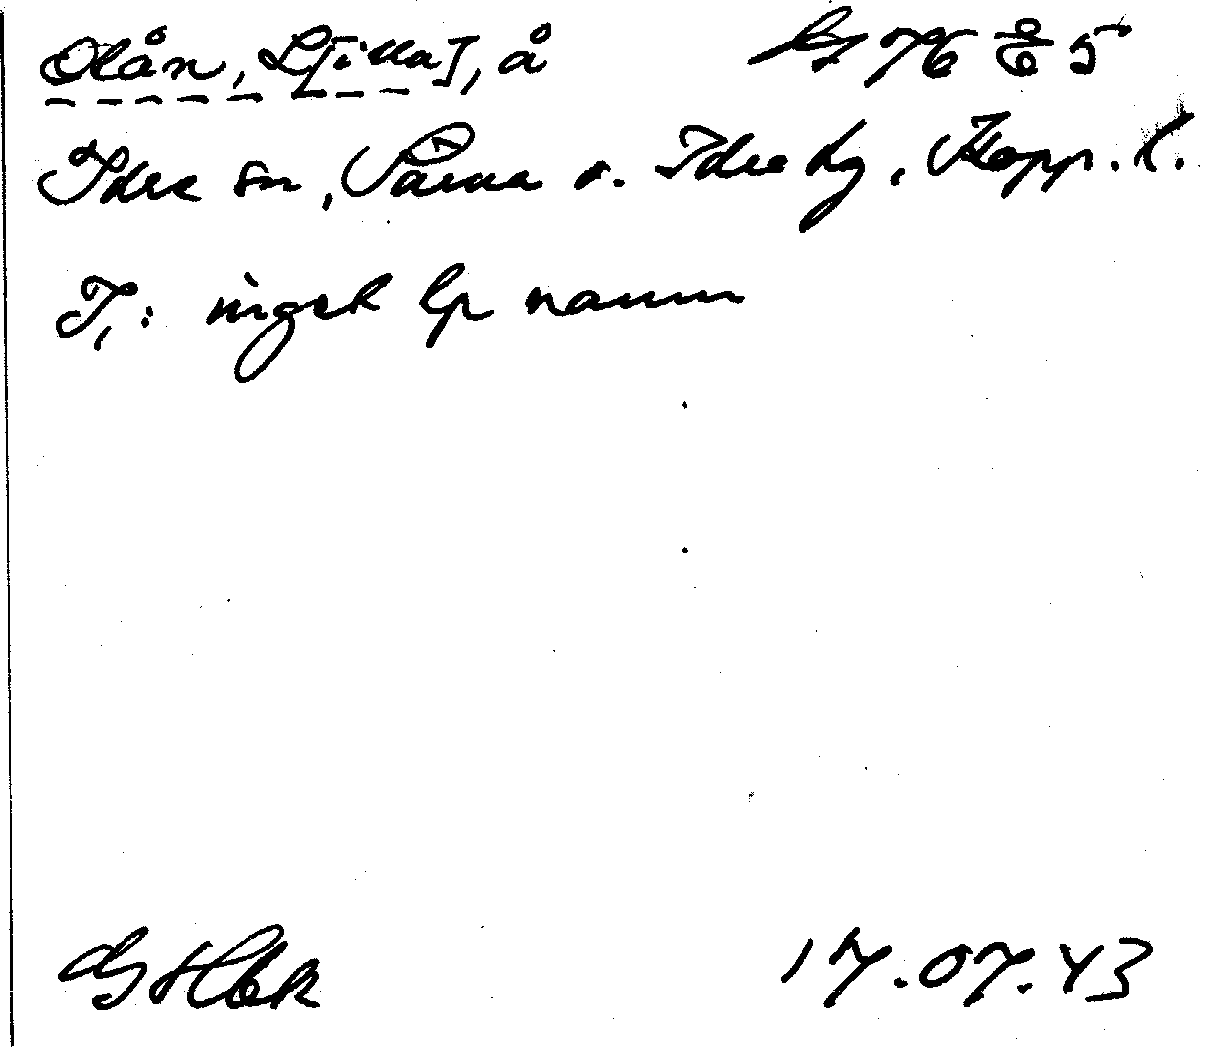 Olån, L[illa], å G 76 Ö 5
Idre sn, Särna o. Idre tg, Kopp. l.
T,: inget lp namn
GHbk 17.07.43